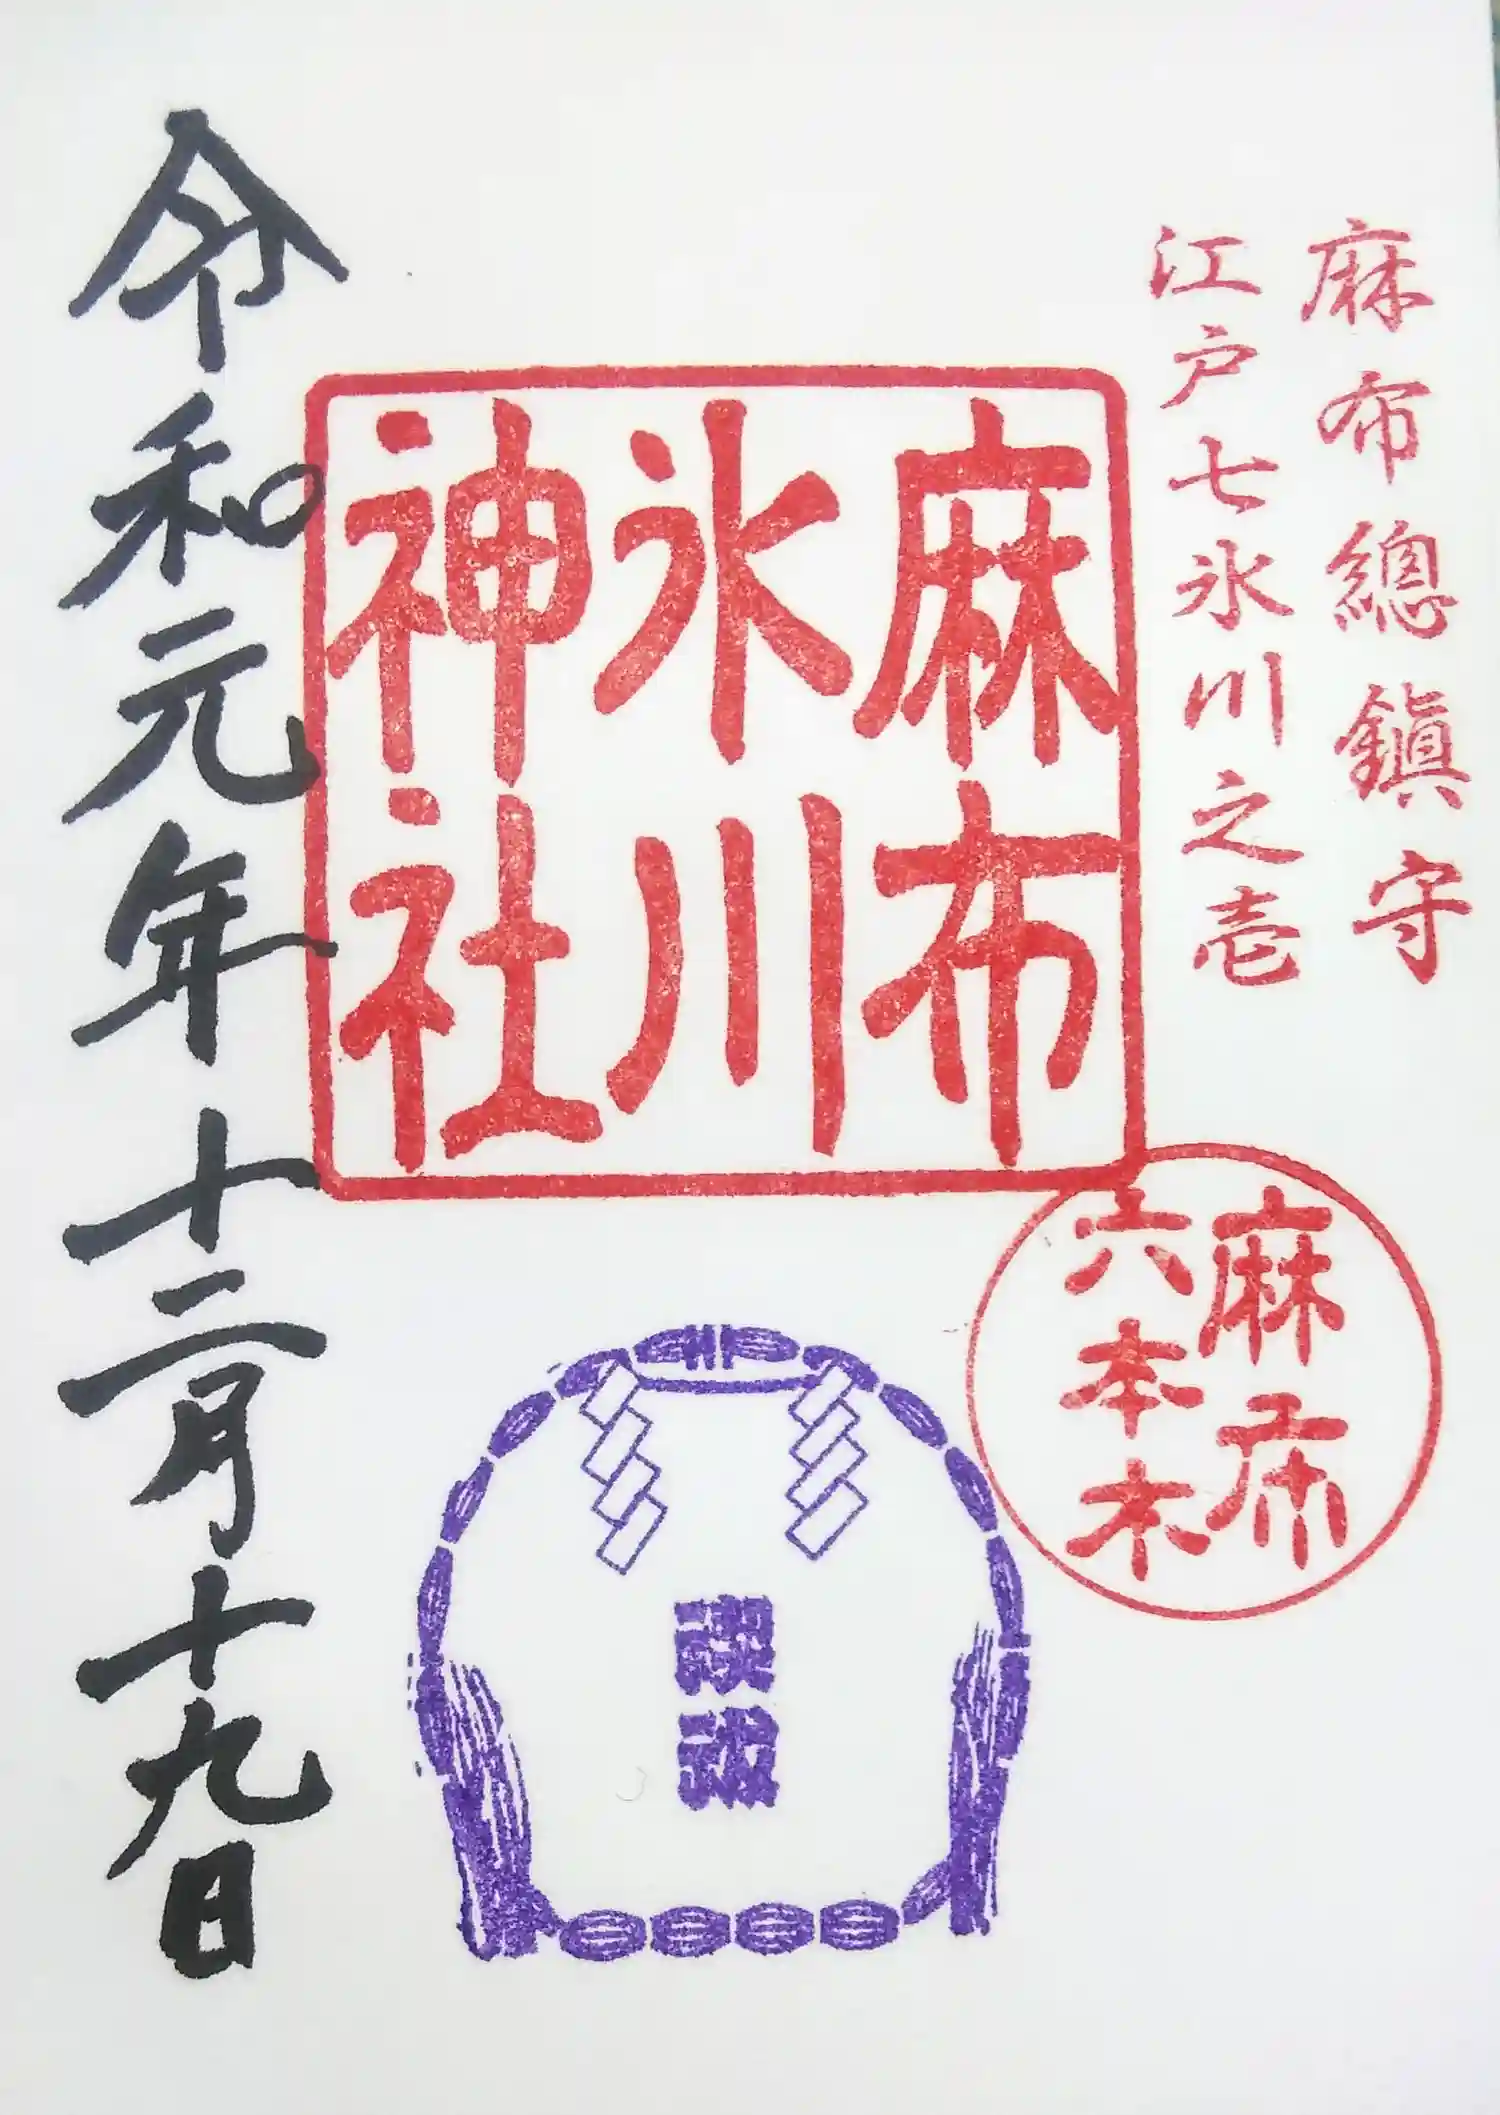 麻布總鎮守
江戸七氷川之壱
麻布
氷川
神社
麻布
六本木
令和元年十二月十九日